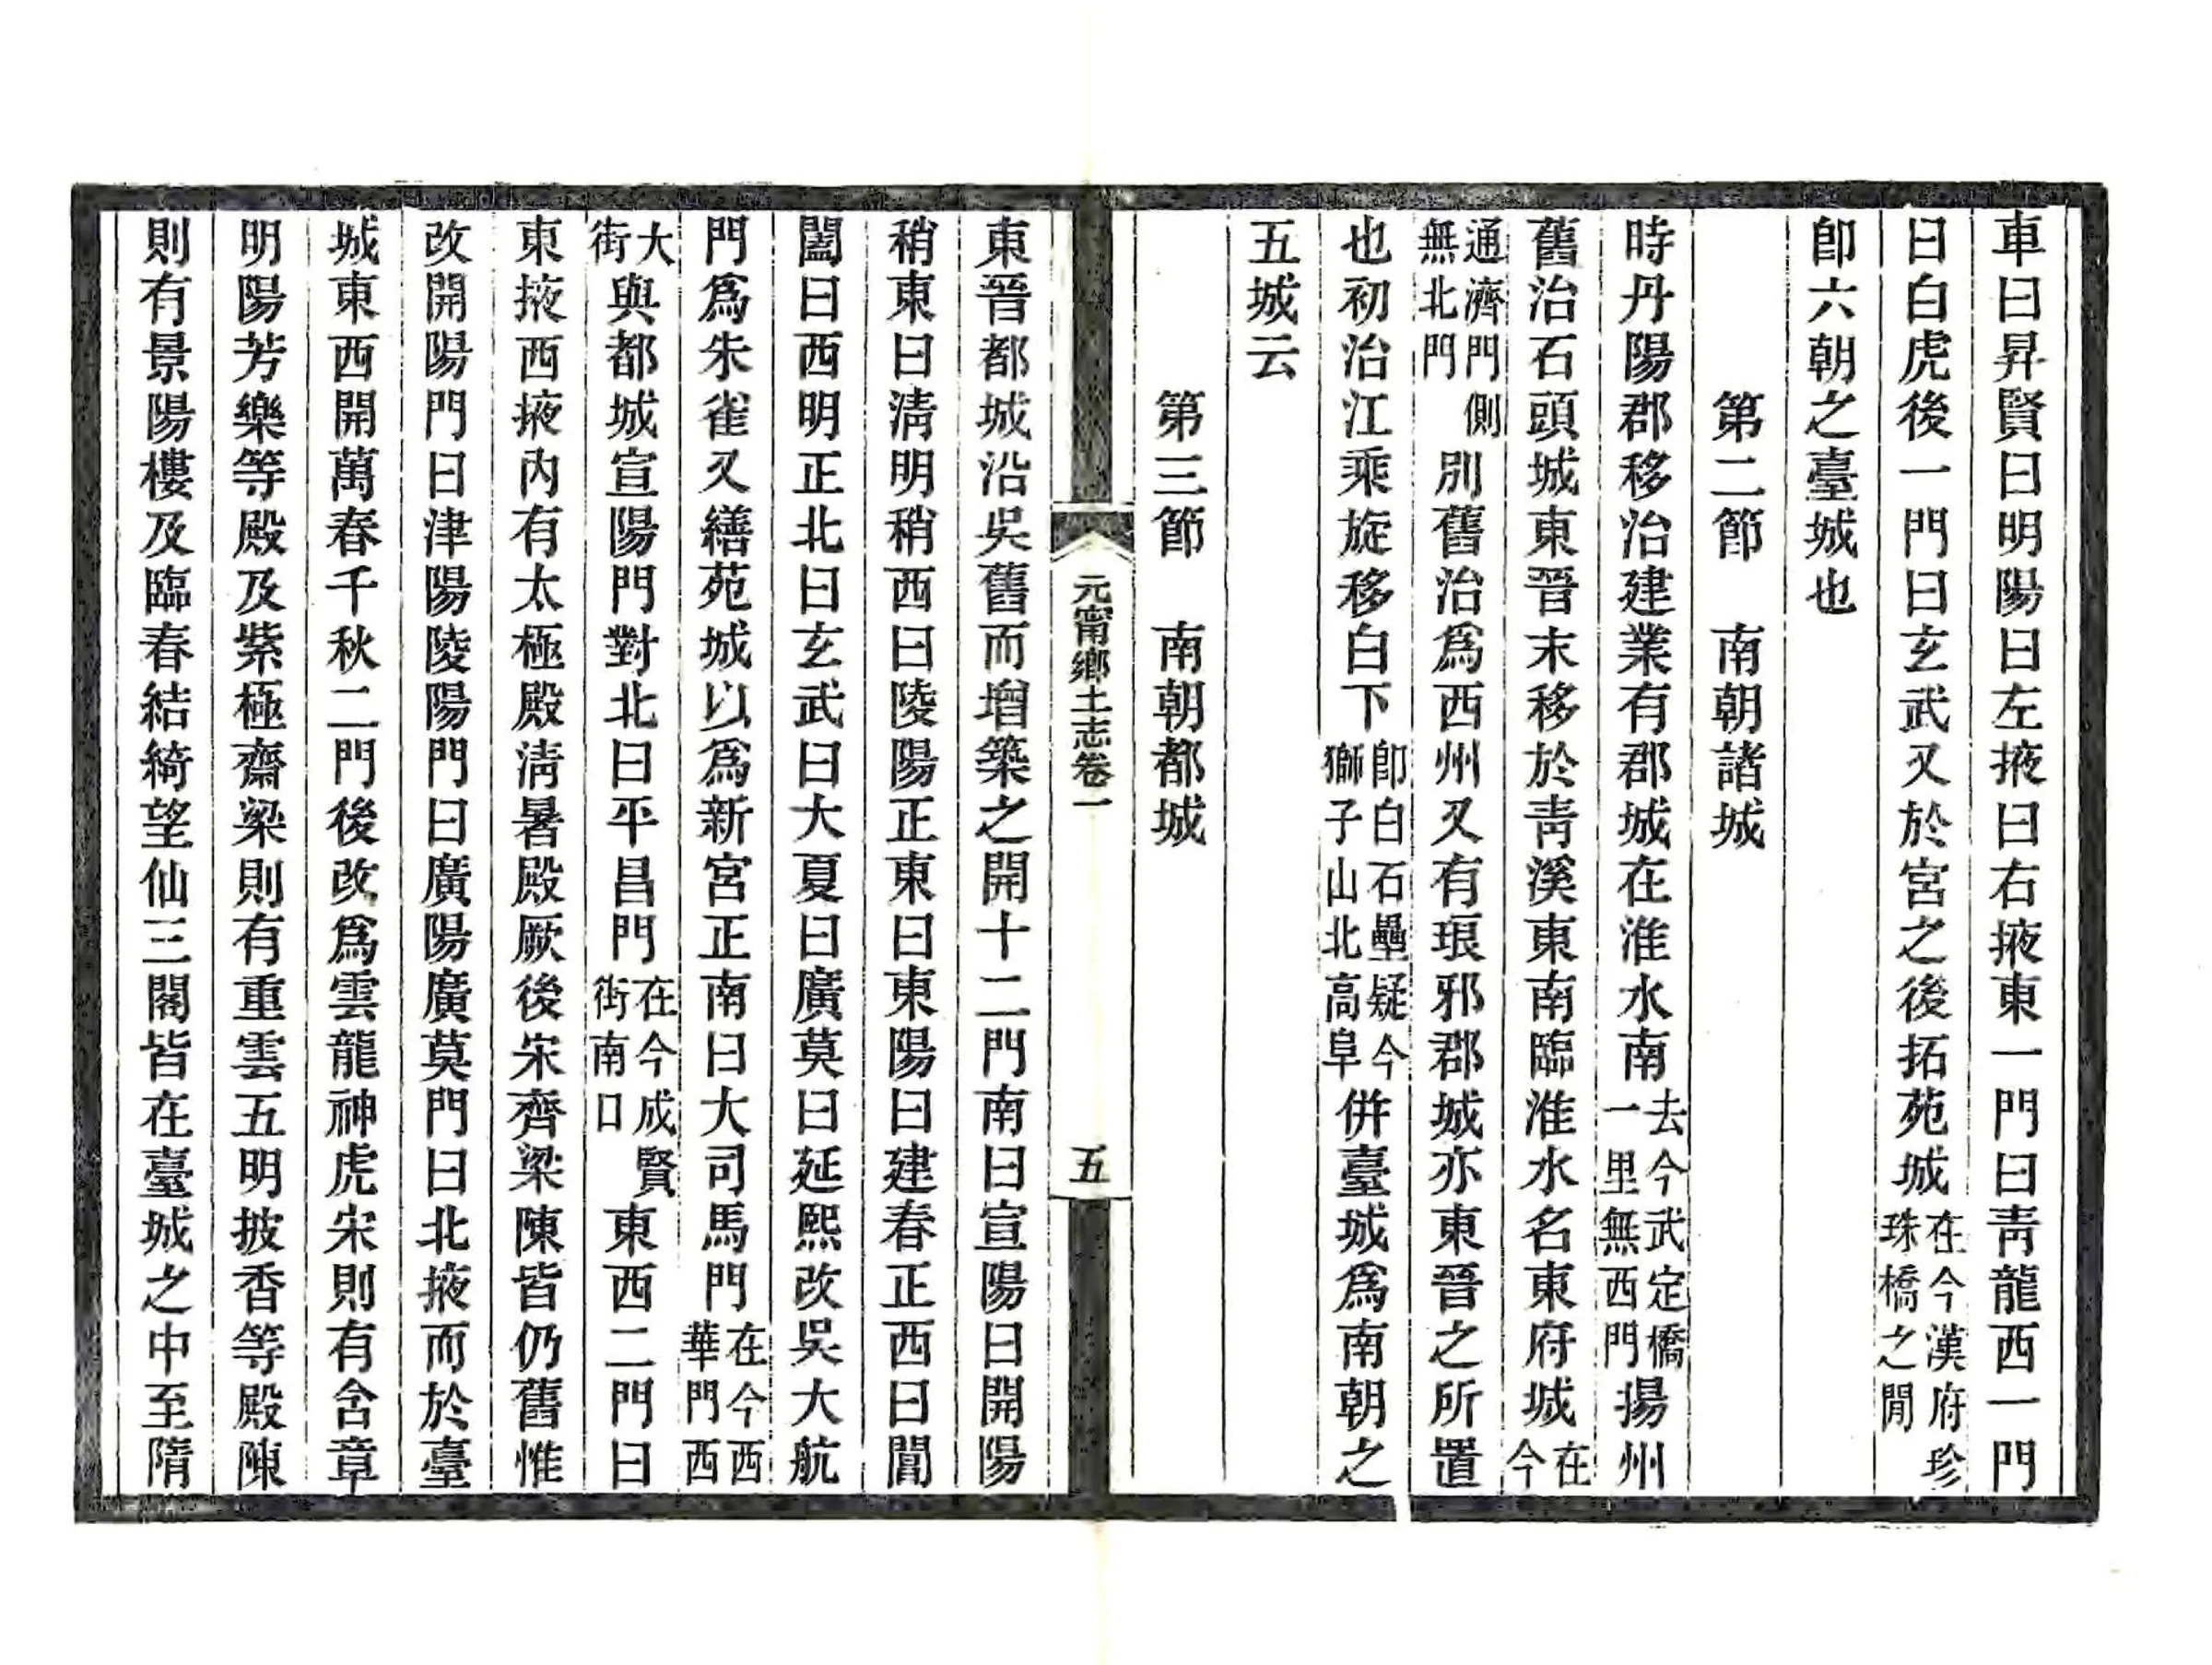 車曰昇賢曰明陽曰左掖曰右掖東一門曰靑龍西一門
曰白虎後一門曰玄武又於宮之後拓苑城在今漢府珍珠橋之閒
卽六朝之臺城也
第二節　南朝諸城
時丹陽郡移治建業有郡城在淮水南去今武定橋一里無西門揚州
舊治石頭城東晉末移於靑溪東南臨淮水名東府城在今
通濟門側無北門別舊治爲西州又有琅邪郡城亦東晉之所置
也初治江乘旋移白下卽白石壘疑今獅子山北高阜併臺城爲南朝之
五城云
第三節　南朝都城
元甯鄉土志卷一
五
東晉都城沿吳舊而增築之開十二門南曰宣陽曰開陽
稍東曰淸明稍西曰陵陽正東曰東陽曰建春正西曰閶
闔曰西明正北曰玄武曰大夏曰廣莫曰延熙改吳大航
門爲朱雀又繕苑城以爲新宮正南曰大司馬門在今西華門西西
大街與都城宣陽門對北曰平昌門在今成賢街南口東西二門曰
東掖西掖內有太極殿淸暑殿厥後宋齊梁陳皆仍舊惟
改開陽門曰津陽陵陽門曰廣陽廣莫門曰北掖而於臺
城東西開萬春千秋二門後改爲雲龍神虎宋則有含章
明陽芳樂等殿及紫極齋梁則有重雲五明披香等殿陳
則有景陽樓及臨春結綺望仙三閣皆在臺城之中至隋